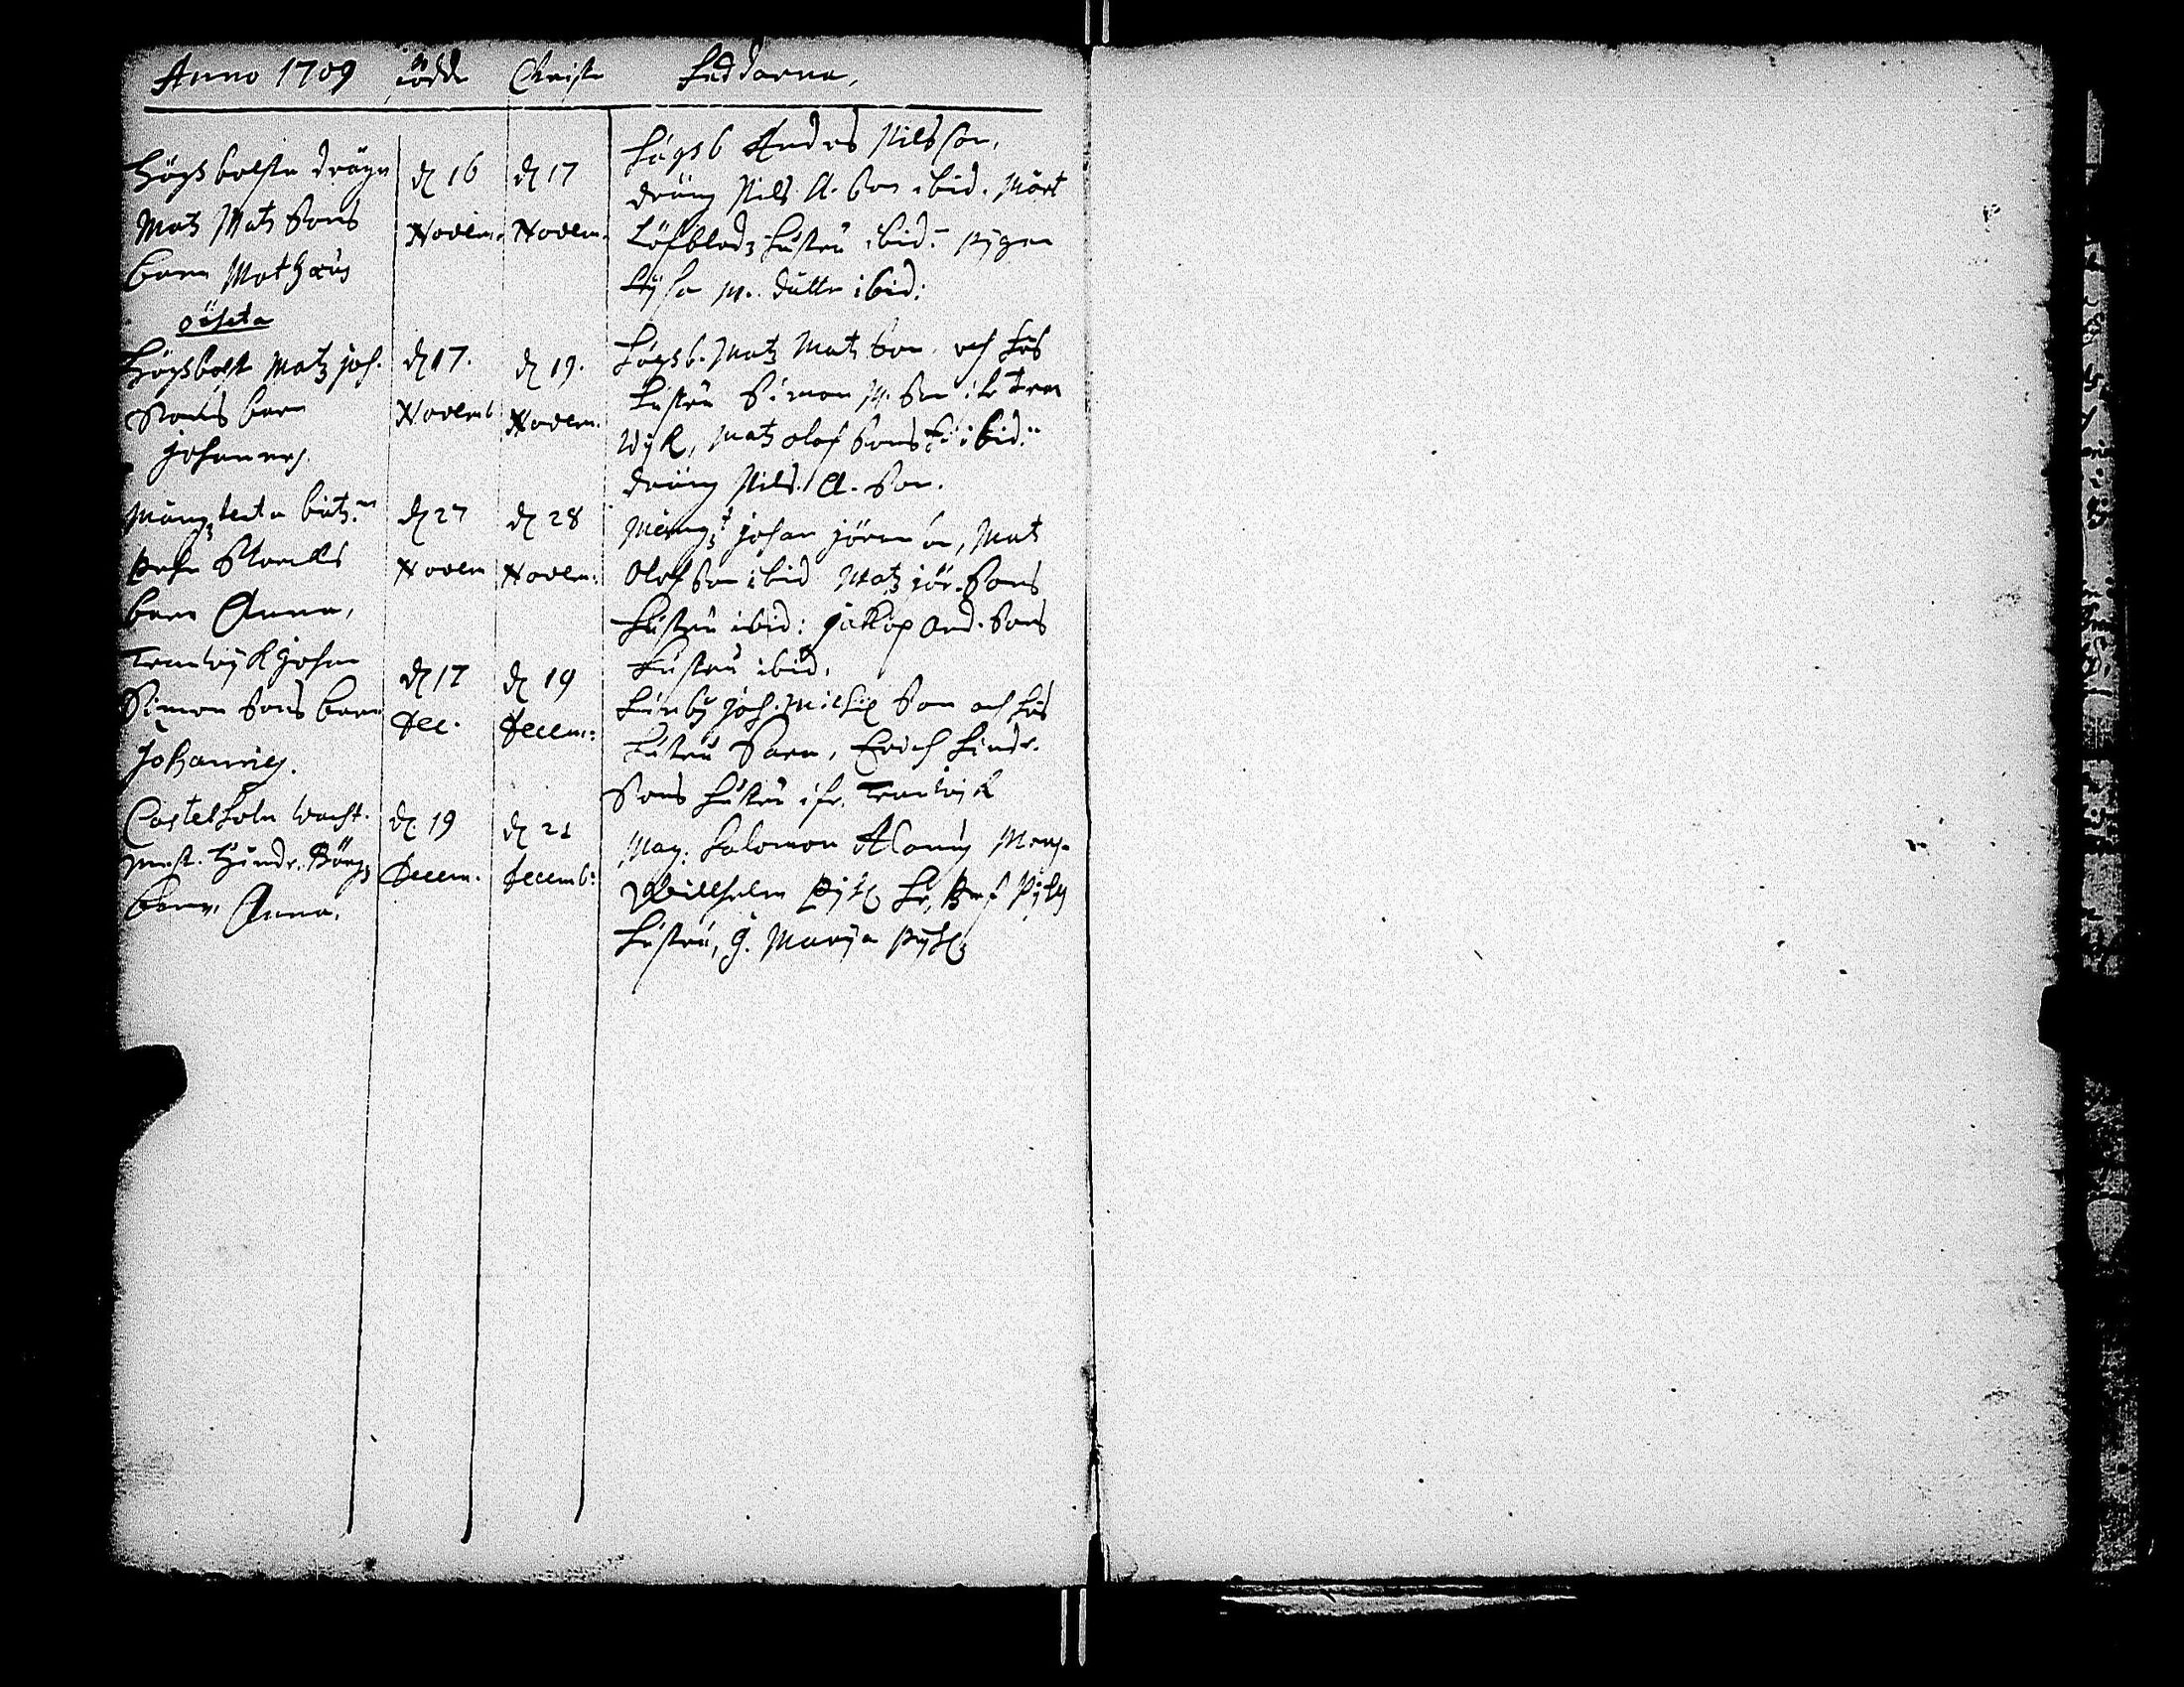 Anno 1709 födde Christn faddarna,
Högsbolsta dräng
Matz Matz Sons
barn Mathæus
oächta
d 16
Novem.
d 17
Novem.
Högsb Anders Nilsson,
dräng Nils A. Son ibid. Mårt
Löfbladz hustru ibid: pigan
Lysa M. dutter ibid:
Högsbolst Matz joh.
Sons barn
Johannes.
d 17.
Novemb
d 19.
Novem.
Högsb. Matz Matz Son och hs
hustru Simon M. Son i
Wijk, Matz olof Sons h: ibid:
dräng Nils A. Son.
Mång techta båtzm
barn Anna,
d 27
Novem
d 28
Novem:
Mång johan jöran son, Mat
Olof Son ibid Matz jör. Sons
hustru ibid: Jakop And. Sons
hustru ibid.
Tranwijk Johan
Simon Sons barn
Johannes.
d 17
dec.
d 19
decem:
joh. Michel Son och hs
hustru Erich hindr.
Sons hustru ifr. Tranwijk
Castelholm wacht.
mest. hindr.
barn, Anna.
d. 19
Decem.
d 21
decemb:
Mag: Salomon Alanus
Willhelm
hustru, J. Marija